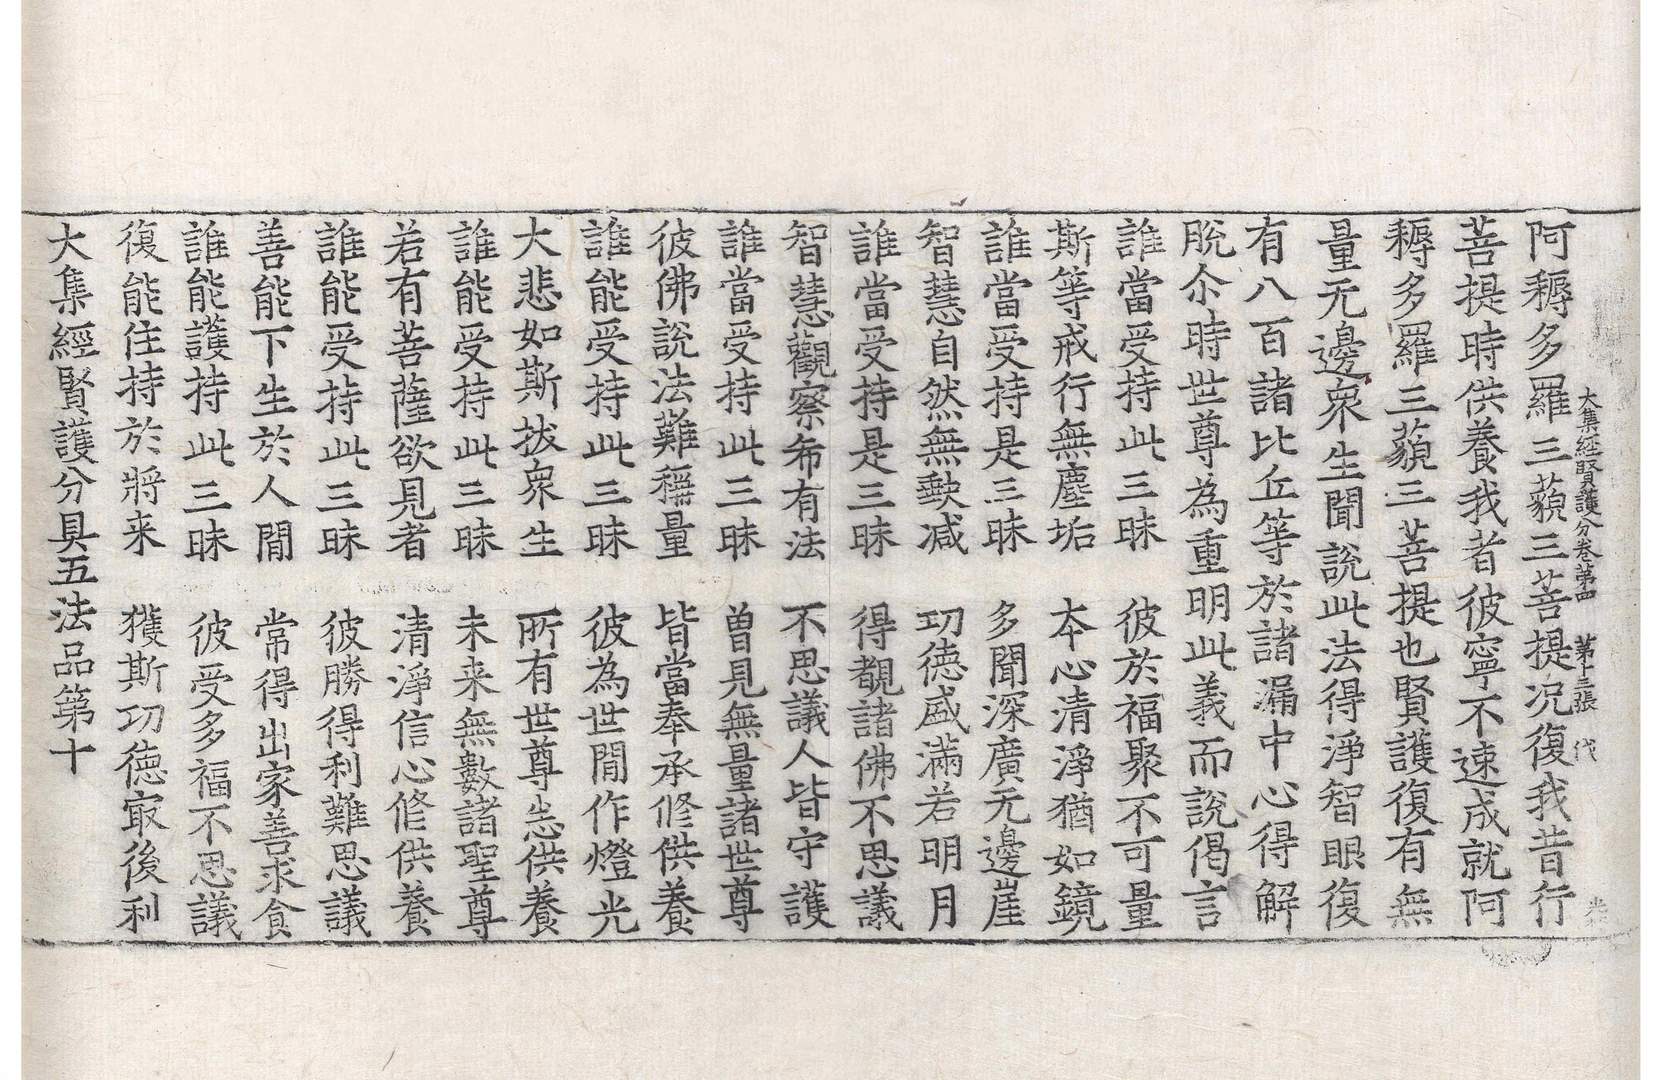 大集經賢護分卷第四 第十三張 伐
阿耨多羅三藐三菩提況復我昔行
菩提時供養我者彼寧不速成就阿
耨多羅三藐三菩提也賢護復有無
量无邊衆生聞說此法得淨智眼復
有八百諸比丘等於諸漏中心得解
脫尒時世尊為重明此義而說偈言
誰當受持此三昧 彼於福聚不可量
斯等戒行無塵垢 本心清淨猶如鏡
誰當受持是三昧 多聞深廣无邊崖
智慧自然無歎减 功德盛滿若明月
誰當受持是三昧 得覩諸佛不思議
智慧觀察希有法 不思議人皆守護
誰當受持此三昧 曽見無量諸世尊
彼佛說法難稱量 皆當奉承修供養
誰能受持此三昧 彼為世間作燈光
大悲如斯拔衆生 所有世尊悉供養
誰能受持此三昧 未来無數諸聖尊
若有菩薩欲見者 清淨信心修供養
誰能受持此三昧 彼勝得利難思議
善能下生於人間 常得出家善求食
誰能護持此三昧 彼受多福不思議
復能住持於將来 獲斯功德㝡後利
大集經賢護分具五法品第十